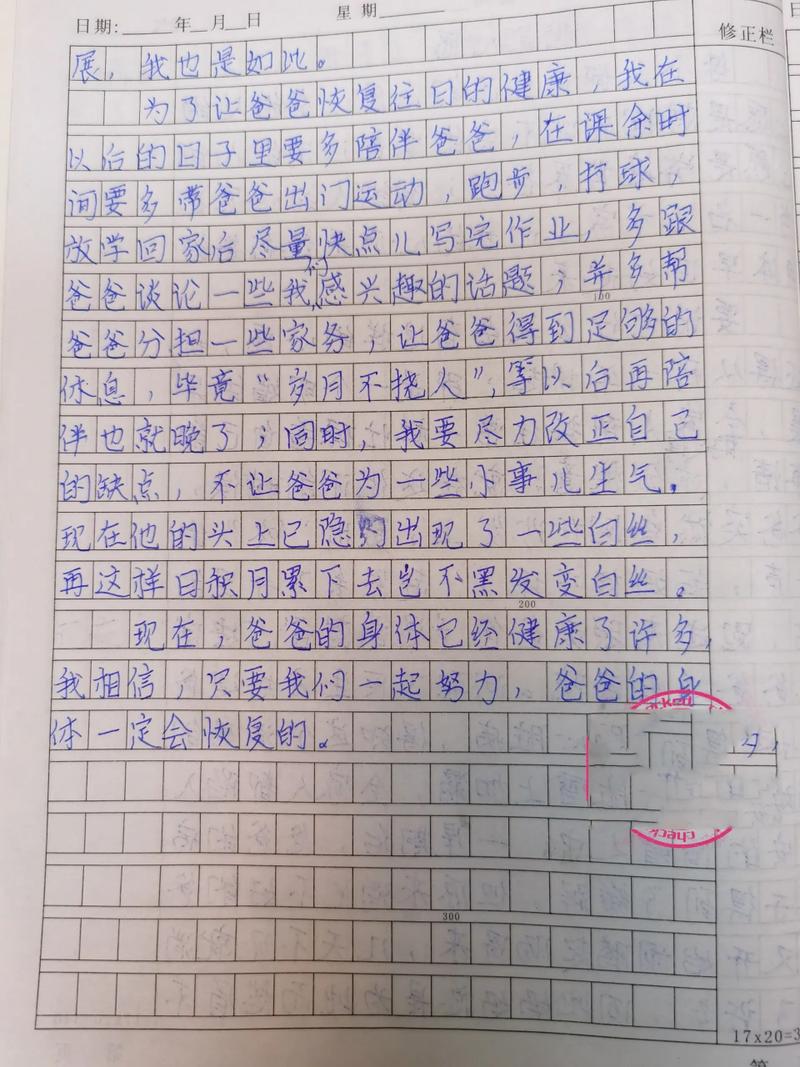 日期: 年 月 日 星期
修正栏
展，我也是如此。
为了让爸爸恢复往日的健康，我在
以后的日子里要多陪伴爸爸，在课余时
间要多带爸爸出门运动，跑步，打球，
放学回家后尽量快点儿写完作业，多跟
爸爸谈论一些我们感兴趣的话题；并多帮
100
爸爸分担一些家务，让爸爸得到足够的
休息，毕竟“岁月不挠人”，等以后再陪
伴也就晚了；同时，我要尽力改正自己
的缺点，不让爸爸为一些小事儿生气。
现在他的头上已隐约出现了一些白丝，
再这样日积月累下去岂不黑发变白丝。
200
现在，爸爸的身体已经健康了许多，
我相信，只要我们一起努力，爸爸的身
体一定会恢复的。
300
17x20=3